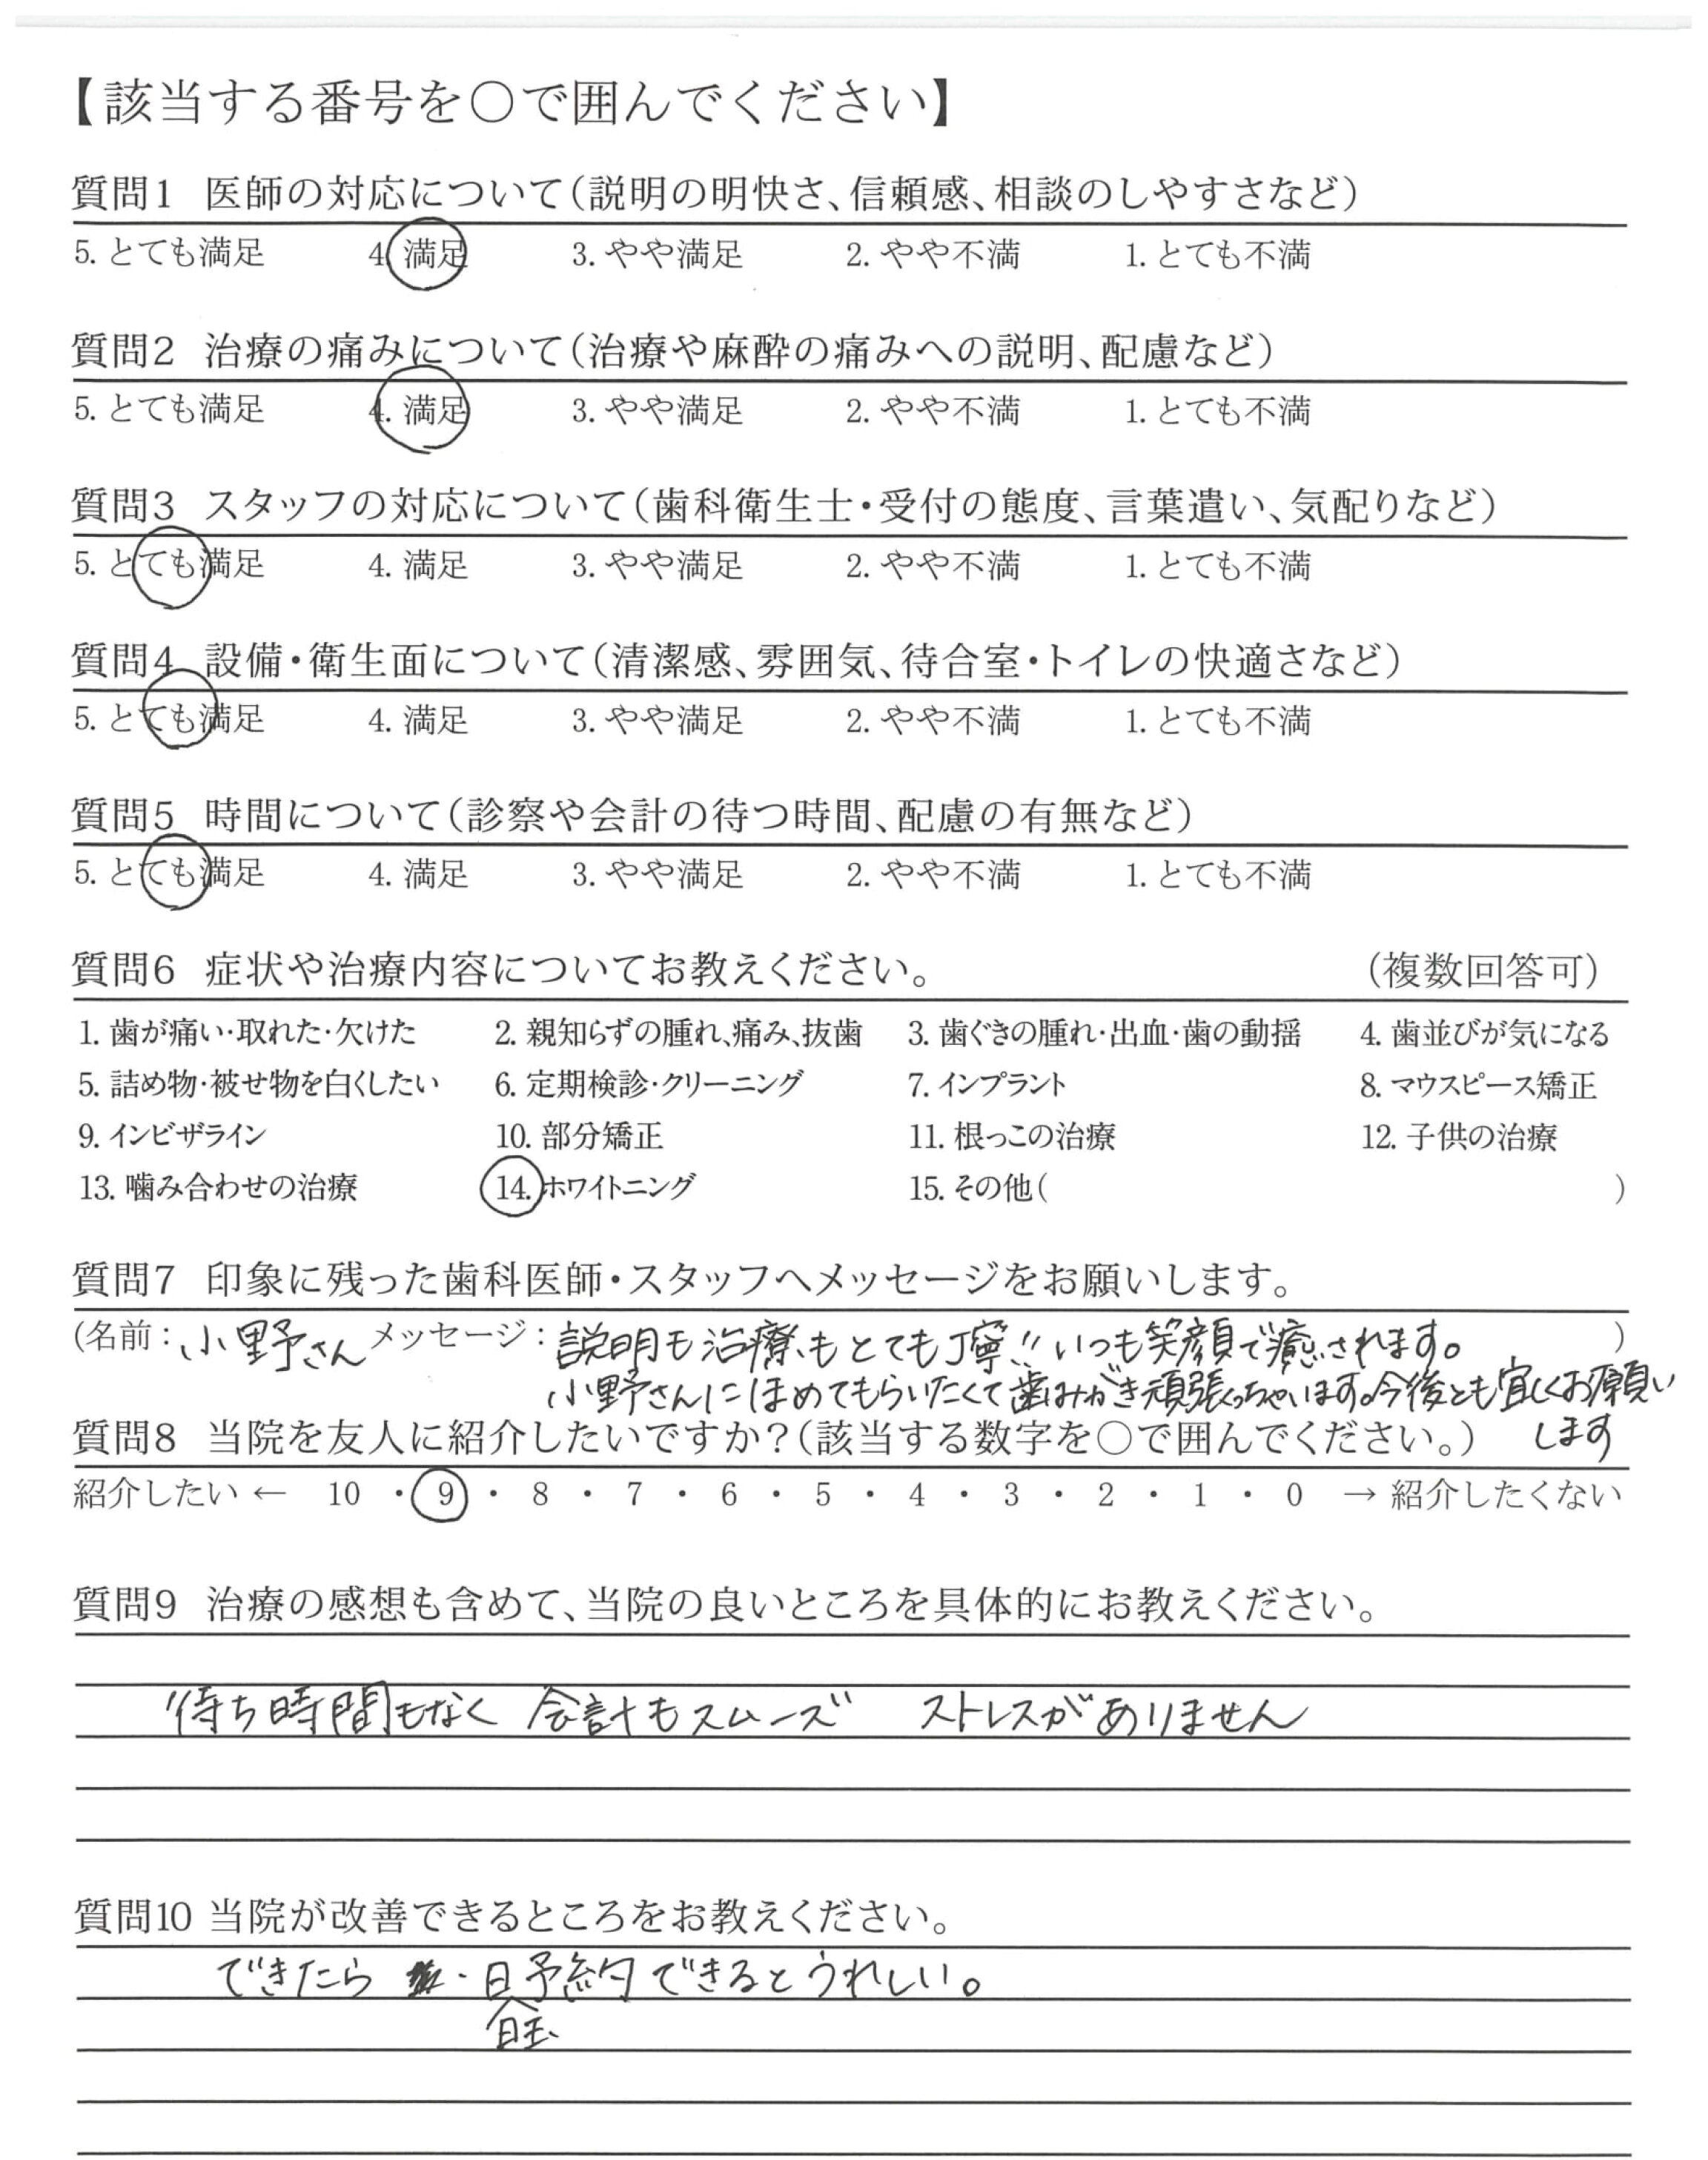 【該当する番号を〇で囲んでください】
質問1 医師の対応について(説明の明快さ、信頼感、相談のしやすさなど)
5. とても満足 4. 満足 3. やや満足 2. やや不満 1. とても不満
質問2 治療の痛みについて(治療や麻酔の痛みへの説明、配慮など)
5. とても満足 4. 満足 3. やや満足 2. やや不満 1. とても不満
質問3 スタッフの対応について(歯科衛生士・受付の態度、言葉遣い、気配りなど)
5. とても満足 4. 満足 3. やや満足 2. やや不満 1. とても不満
質問4 設備・衛生面について(清潔感、雰囲気、待合室・トイレの快適さなど)
5. とても満足 4. 満足 3. やや満足 2. やや不満 1. とても不満
質問5 時間について(診察や会計の待つ時間、配慮の有無など)
5. とても満足 4. 満足 3. やや満足 2. やや不満 1. とても不満
質問6 症状や治療内容についてお教えください。 (複数回答可)
1. 歯が痛い・取れた・欠けた 2. 親知らずの腫れ、痛み、抜歯 3. 歯ぐきの腫れ・出血・歯の動揺 4. 歯並びが気になる
5. 詰め物・被せ物を白くしたい 6. 定期検診・クリーニング 7. インプラント 8. マウスピース矯正
9. インビザライン 10. 部分矯正 11. 根っこの治療 12. 子供の治療
13. 噛み合わせの治療 14. ホワイトニング 15. その他( )
質問7 印象に残った歯科医師・スタッフへメッセージをお願いします。
(名前:小野さん メッセージ:説明も治療もとても丁寧!! いつも笑顔で癒されます。 )
小野さんにほめてもらいたくて歯みがき頑張っちゃいます。今後とも宜しくお願い
します
質問8 当院を友人に紹介したいですか?(該当する数字を〇で囲んでください。)
紹介したい ← 10 ・ 9 ・ 8 ・ 7 ・ 6 ・ 5 ・ 4 ・ 3 ・ 2 ・ 1 ・ 0 → 紹介したくない
質問9 治療の感想も含めて、当院の良いところを具体的にお教えください。
待ち時間もなく 会計もスムーズ ストレスがありません
質問10 当院が改善できるところをお教えください。
できたら ・日予約できるとうれしい。